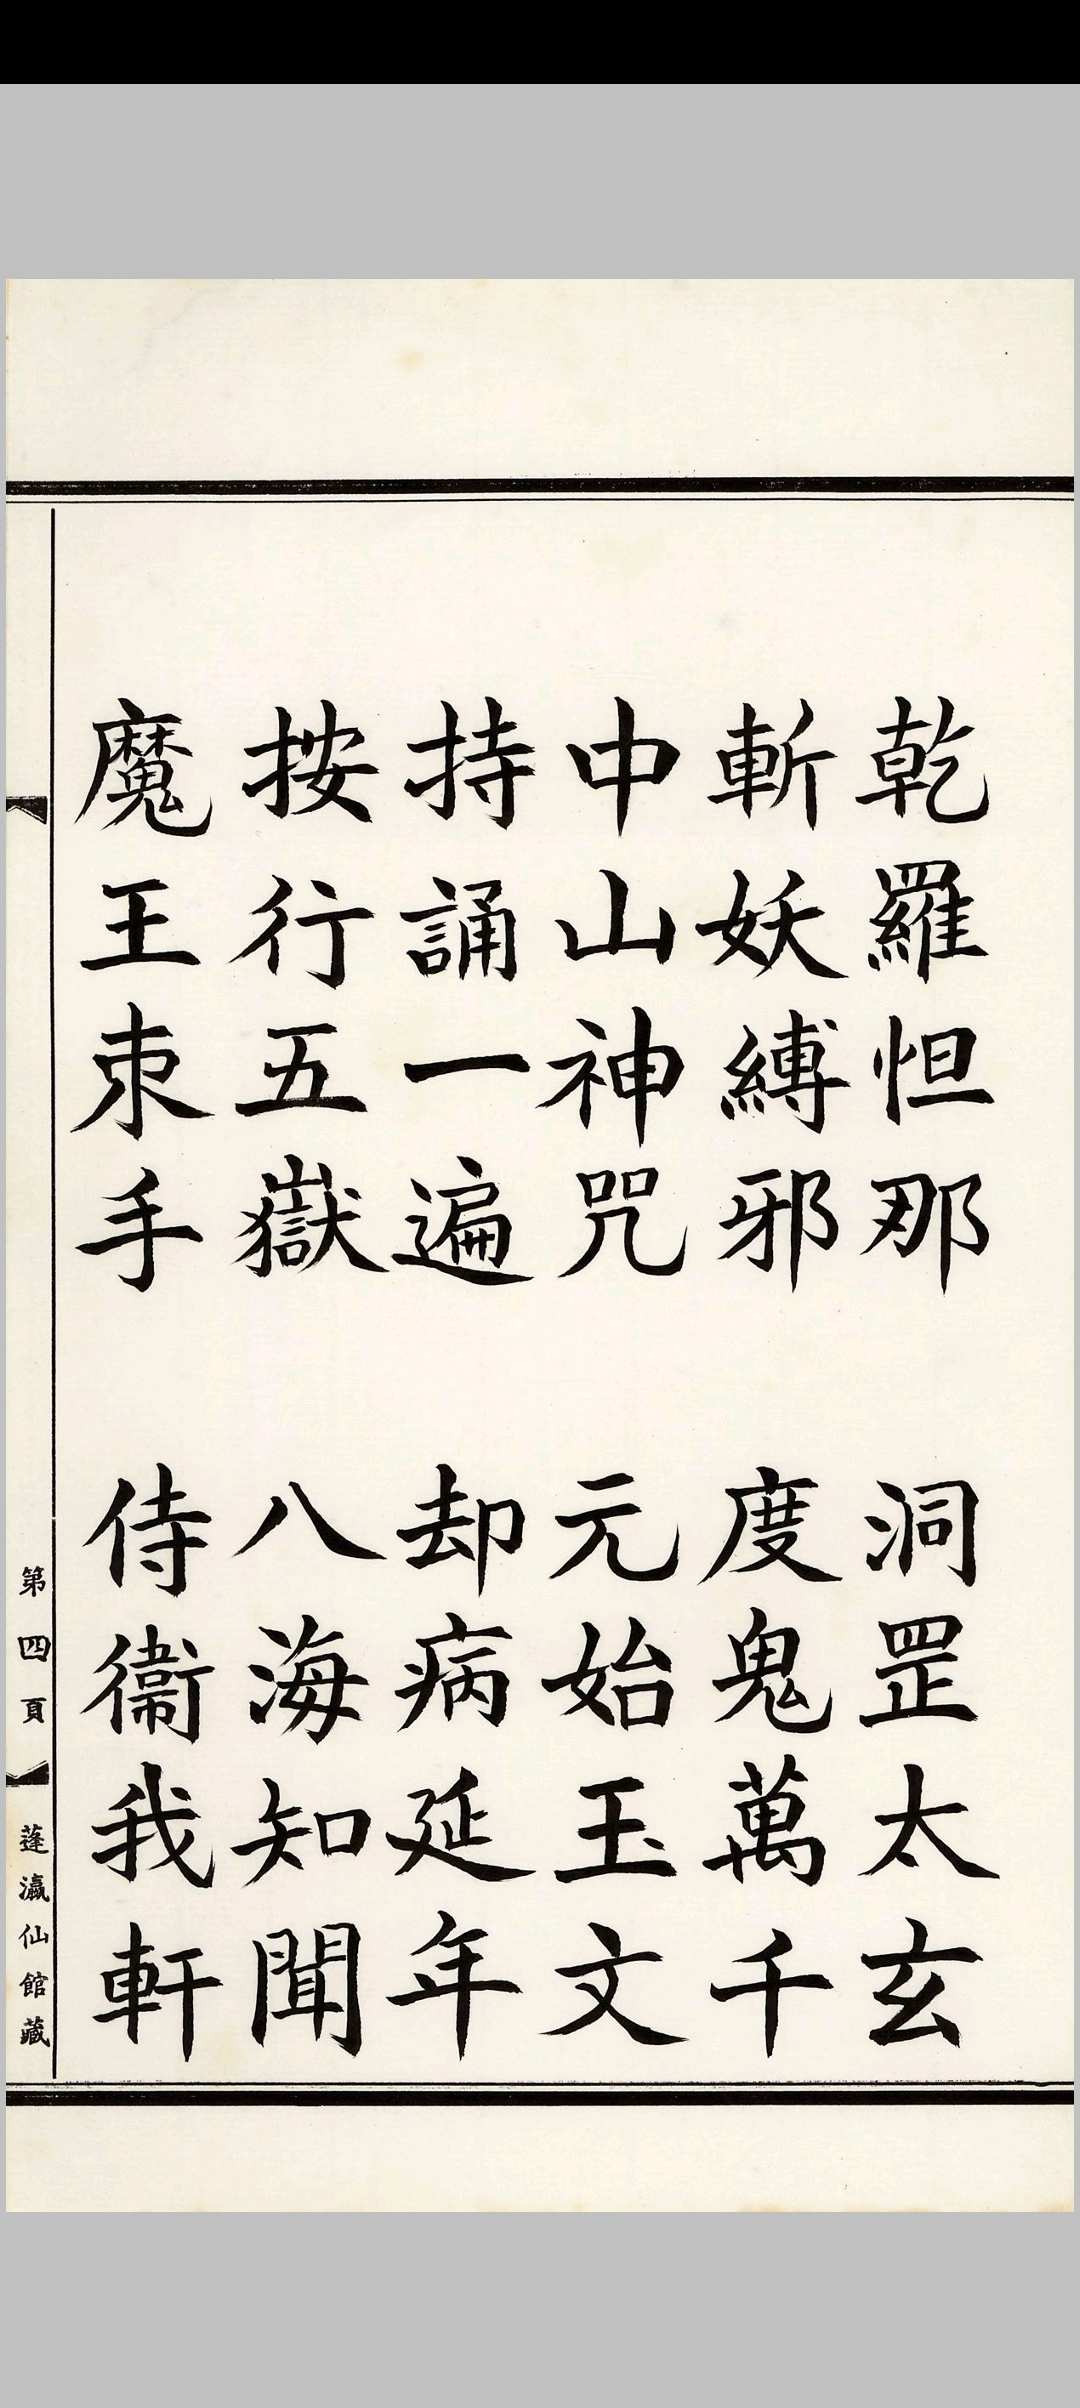 乾羅怛那 洞罡太玄
斬妖縛邪 度鬼萬千
中山神咒 元始玉文
持誦一遍 却病延年
按行五嶽 八海知聞
魔王束手 侍衞我軒
第四頁 蓬瀛仙館藏